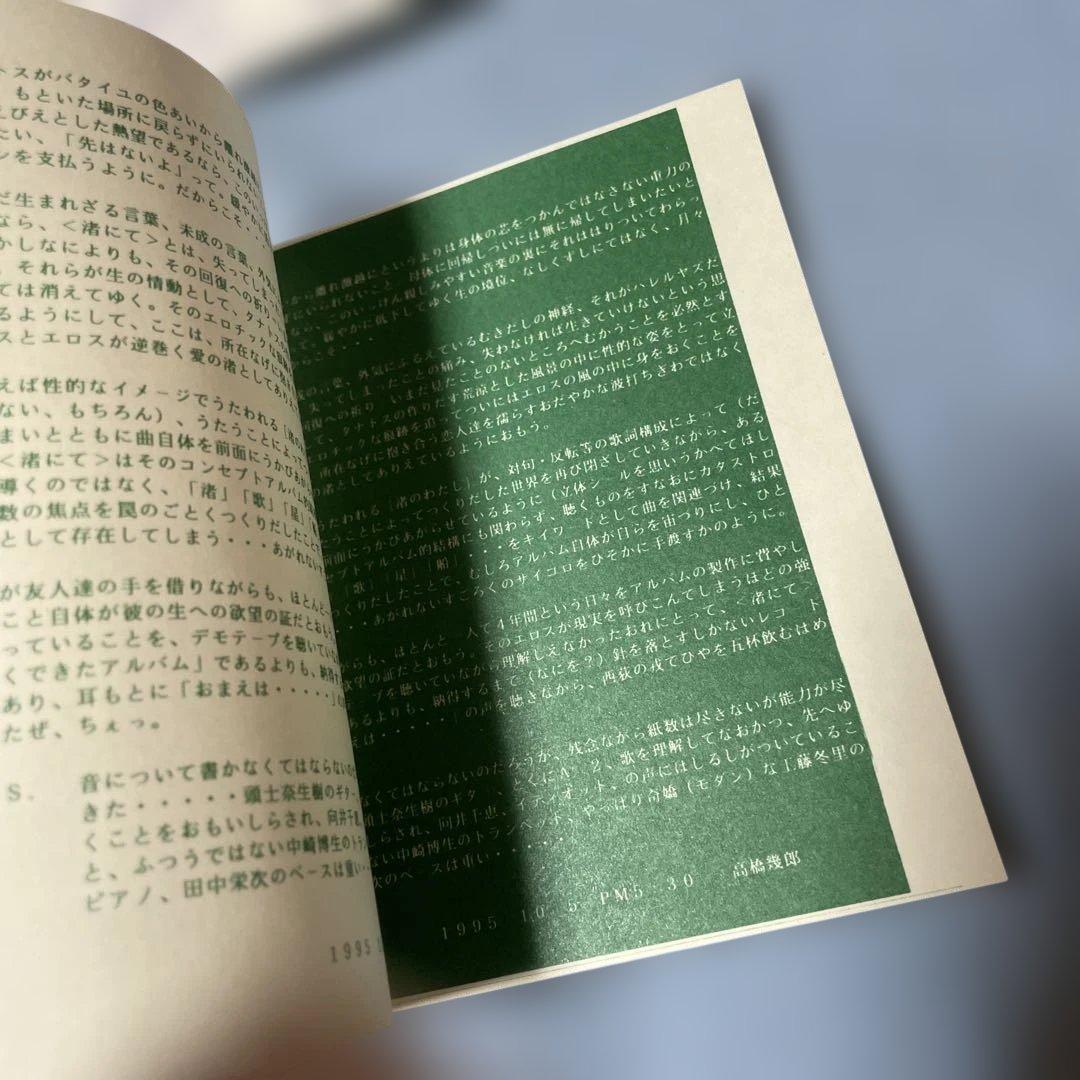 トスがバタイユの色あいから離れ
もといた場所に戻らずにいられない
えびえとした熱望であるなら、この
たい、「先はないよ」って。緩やかに
ンを支払うように。だからこそ・・
だ生まれざる言葉、未成の言葉、外気
なら、<渚にて>とは、失ってしまった
かしなによりも、その回復への祈り
。それらが生の情動として、タナトス
ては消えてゆく。そのエロチックな痕跡
るようにして、ここは、所在なげに抱き
スとエロスが逆巻く愛の渚としてあり
えば性的なイメージでうたわれる「渚の
ない、もちろん)、うたうことによって
まいとともに曲自体を前面にうかびあが
<渚にて>はそのコンセプトアルバム
導くのではなく、「渚」「歌」「星」
数の焦点を罠のごとくつくりだしたことで
として存在してしまう・・・あがれない
が友人達の手を借りながらも、ほとんど
こと自体が彼の生への欲望の証だとおもう
っていることを、デモテープを聴いていな
くできたアルバム」であるよりも、納得
あり、耳もとに「おまえは・・・・・」
たぜ、ちぇっ。
S. 音について書かなくてはならないの
きた・・・・・頭士奈生樹のギター
くことをおもいしらされ、向井千恵
と、ふつうではない中崎博生のトラン
ピアノ、田中栄次のベースは重い・・
1995
から離れ激越にというよりは身体の芯をつかんではなさない重力の
られないこと 母体に回帰しついには無に帰してしまいたいと
ない、このいっけん親しみやすい音楽の裏にそれははりついてわらっ
て。緩やかに低下してゆく生の境位、なしくずしにではなく、月々
こそ・・・・
の言葉、外気にふるえているむきだしの神経、それがハレルヤズだ
失ってしまったことの痛み、失わなければ生きていけないという思
回復への祈り いまだ見たことのないところへむかうことを必然とす
て、タナトスの作りだす荒涼とした風景の中に性的な姿をとって立
ロチックな痕跡を追ってついにはエロスの風の中に身をおくことを
所在なげに抱き合う恋人達を濡らすおだやかな波打ちぎわではなく
渚としてありえているようにおもう。
うたわれる「渚のわたし」が、対句・反転等の歌詞構成によって(だ
うことによってつくりだした世界を再び閉ざしていきながら、ある
前面にうかびあがらせているように(立体シールを思いうかべてほし
プトアルバム的結構にも関わらず、聴くものをすなおにカタストロ
歌」「星」「船」・・・をキイワードとして曲を関連づけ、結果
つくりだしたことで、むしろアルバム自体が自らを宙つりにし、ひと
・・・あがれないすごろくのサイコロをひそかに手渡すかのように。
らも、ほとんど一人で4年間という日々をアルバムの製作に費やし
欲望の証だとおもう。そのエロスが現実を呼びこんでしまうほどの強
プを聴いていながら理解しえなかったおれにとって、「渚にて」
あるよりも、納得するまで(なにを?)針を落とすしかないレコード
えは・・・・・」の声を聴きながら、西荻の戎でひやを五杯飲むはめ
なくてはならないのだろうか、残念ながら紙数は尽きないが能力が尽
頭士奈生樹のギター、とくにA-2、歌を理解してなおかつ、先へゆ
しらされ、向井千恵、イディオット、の声にはしるしがついているこ
ない中崎博生のトランペット、やっぱり奇矯(モダン)な工藤冬里の
次のベースは重い・・・・・
1995 10 5 PM5 30 高橋幾郎